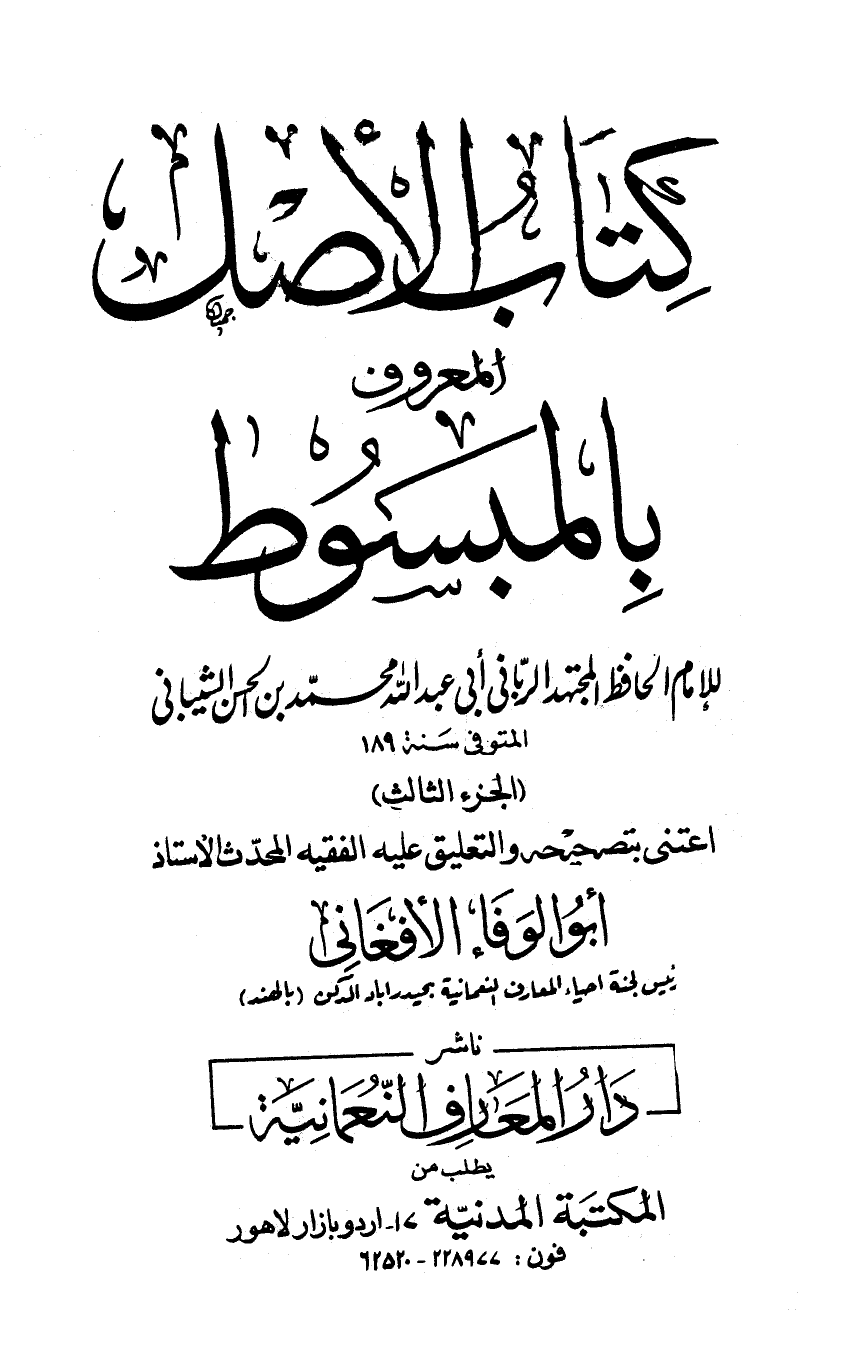 كِتَابُ الأَصْل
المعروف
بِالمَبسُوط
للإمام الحافظ المجتهد الربّاني أبي عبد الله محمّد بن الحسن الشيباني
المتوفى سَنة ١٨٩
(الجزء الثالث)
اعتنى بتصحيحه والتعليق عليه الفقيه المحدّث الأستاذ
أبُو الوَفَاء الأفغَانِي
رئيس لجنة احياء المعارف النعمانية بحيدراباد الدكن (بالهند)
ناشر
دَارُ المَعَارِف النُّعمَانِيَّة
يطلب من
المكتبَة المدنيّة ١٧- اردو بازار لاهور
فون : ٢٢٨٩٧٧ - ٦٢٥٢٠